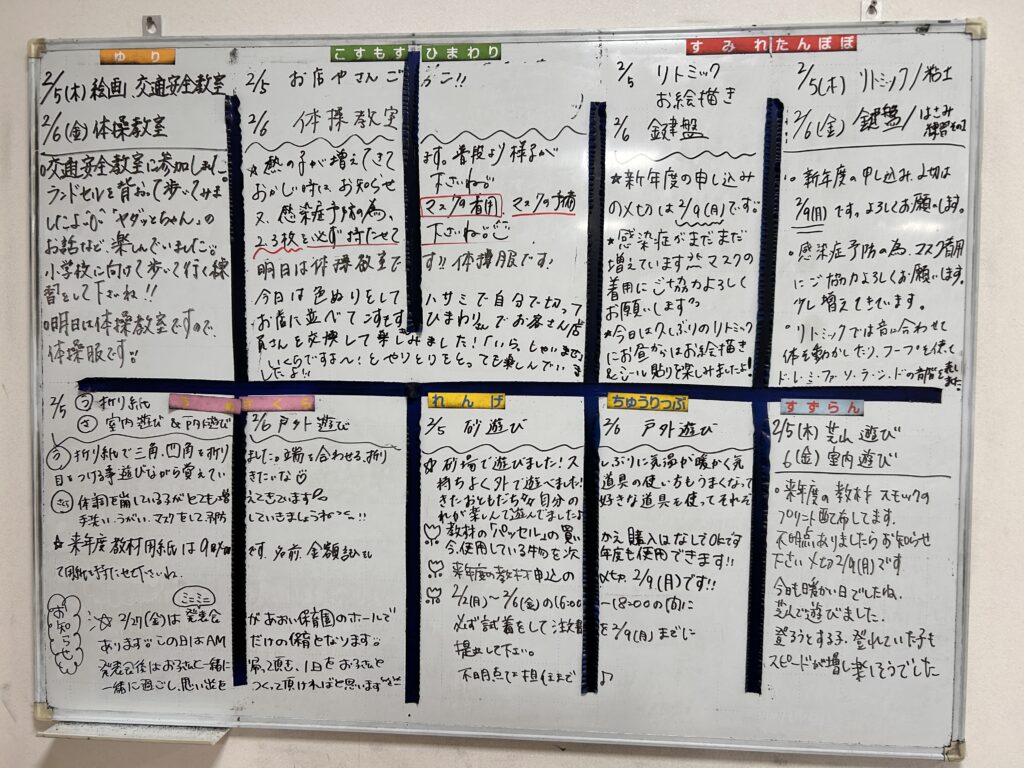 ゆり
2/5(木) 絵画、交通安全教室
2/6(金) 体操教室
○交通安全教室に参加しました。
ランドセルを背おって歩いてみま
したよ。「ヤダッとちゃん」の
お話など、楽しんでいました。
小学校に向けて歩いて行く練
習をして下さいね!!
○明日は体操教室ですので、
体操服です。
こすもす ひまわり
2/5 お店やさんごっこ!!
2/6 体操教室
★熱の子が増えてきて ます。普段より様子が
おかしい時は、お知らせ 下さいね。
又、感染症予防の為、 マスク着用、マスクの予備
2.3枚を必ず持たせて 下さいね。
明日は体操教室で す!! 体操服です!
今日は色ぬりをして ハサミで自分で切って
お店に並べてこすもす ひまわりさんでお客さん、店
員さんを交換して楽しみました!「いらっしゃいませ」
「いくらですよ~!」とやりとりをとっても楽しんでいま
したよ!!
すみれ たんぽぽ
2/5 リトミック
お絵描き
2/6 鍵盤
★新年度の申し込み
の〆切は2/9(月)です。
★感染症がまだまだ
増えています マスクの
着用にご協力よろしく
お願いします
★今日は久しぶりのリトミック
にお昼からはお絵描き
&シール貼りを楽しみましたよ!
2/5(木) リトミック/粘土
2/6(金) 鍵盤/はさみ
練習その2
○新年度の申し込み〆切は
2/9(月)です。よろしくお願いします。
○感染症予防の為、マスク着用
にご協力よろしくお願いします。
少し増えてきています。
○リトミックでは音に合わせて
体を動かしたり、フープを使って
ド・レ・ミ・ファ・ソ・ラ・シ・ドの音階を表し
ました。
さくら
2/5 折り紙
室内遊び&戸外遊び
2/6 戸外遊び
折り紙で三角、四角を折り ました。端を合わせる、折り
目をつける事、遊びながら覚えてい きたいな
体調を崩している子がとても増 えてきています
手洗い、うがい、マスクをして予防 していきましょうね
★来年度教材用紙は9日(月) です。名前、金額記入し
て同封し持たせて下さいね。
お知らせ
ミニミニ
2/27(金)は発表会 があおい保育園のホールで
あります。この日はAM だけの保育となります。
発表会後はお子さんと一緒に 帰って頂き、1日をお子さんと
一緒に過ごし、思い出を つくって頂ければと思います
れんげ ちゅうりっぷ
2/5 砂遊び 2/6 戸外遊び
☆砂場で遊びました!久 しぶりに気温が暖かく気
持ちよく外で遊べました! 道具の使い方もうまくなって
きたおともだち 自分の 好きな道具を使ってそれぞ
れが楽しんで遊んでましたよ
教材の「パッセル」の買い かえ購入はなしでOKです
今、使用している物を次 年度も使用できます!!
来年度の教材申込の 〆切、2/9(月)です!!
2/2(月)~2/6(金)の16:00 ~18:00の間に
必ず試着をして注文書 を2/9(月)までに
提出して下さい。
不明点は担任まで♪
すずらん
2/5(木) 芝山遊び
6(金) 室内遊び
○来年度の教材、スモックの
プリント配布してます。
不明点ありましたらお知らせ
下さい 〆切2/9(月)です
今日も暖かい日でしたね。
芝山で遊びました。
登ろうとする子、登れていた子も
スピードが増し楽しそうでした